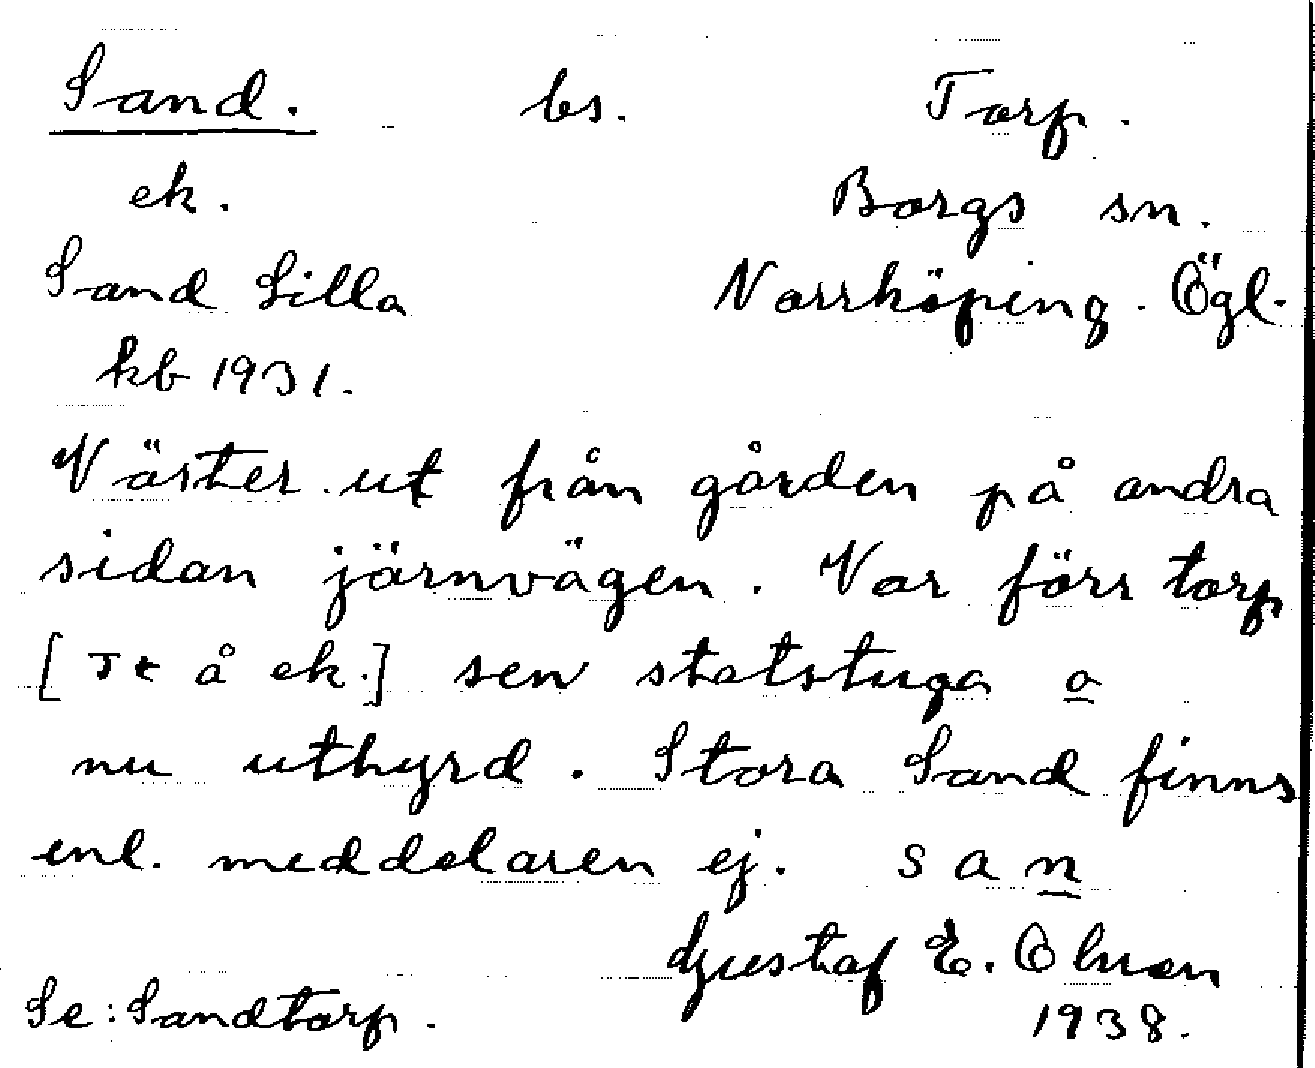 Sand. bs. Torp.
ek. Borgs sn.
Sand Lilla Norrköping. Ögl.
kb 1931.
Väster ut från gården på andra
sidan järnvägen. Var förr torp
[Tk å ek.] sen statstuga a
nu uthyrd. Stora Sand finns
enl. meddelaren ej. san
Gustaf E. Ohlson
Se: Sandtorp. 1938.